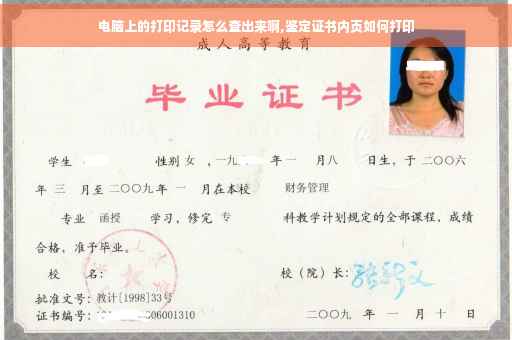 电脑上的打印记录怎么查出来啊,鉴定证书内页如何打印
成人高等教育
毕业证书
学生 性别 女 ,一九 年 一 月 八 日生, 于 二〇〇六
年 三 月至 二〇〇九 年 一 月在本校 财务管理
专业 函授 学习, 修完 专 科教学计划规定的全部课程, 成绩
合格, 准予毕业。
校 名: 校(院)长:
批准文号: 教计[1998]33号
证书编号: 606001310 二〇〇九 年 一 月 十 日